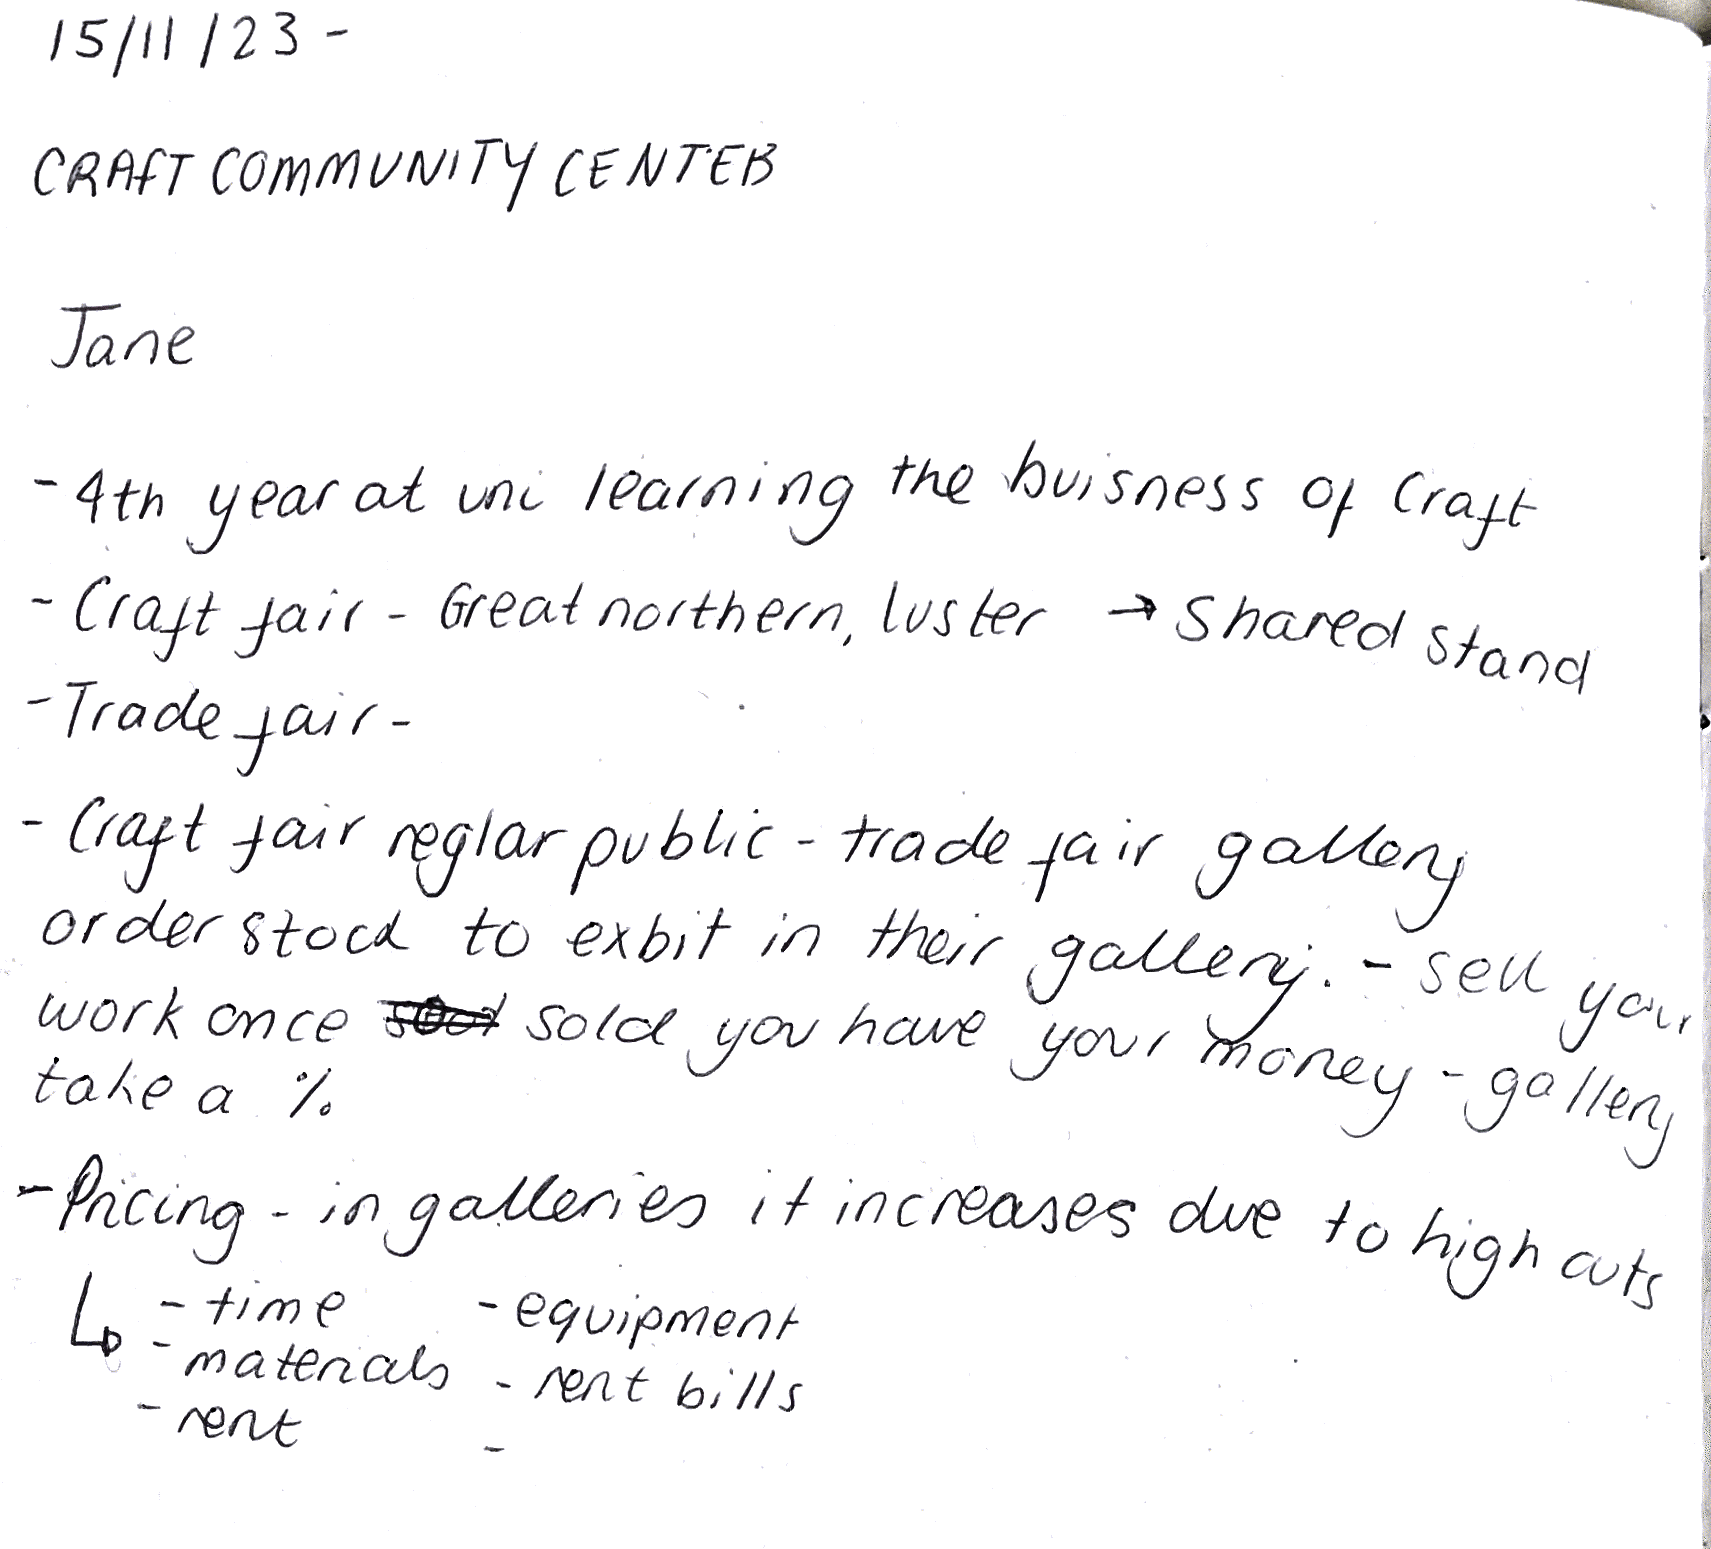 15/11/23 -
CRAFT COMMUNITY CENTER
Jane
- 4th year at uni learning the buisness of Craft
- Craft fair - Great northern, luster → Shared stand
- Trade fair -
- Craft fair reglar public - trade fair gallery
order stock to exbit in their gallery. - sell your
work once sold you have your money - gallery
take a %
- Pricing - in galleries it increases due to high cuts
↳ - time - equipment
- materials - rent bills
- rent -